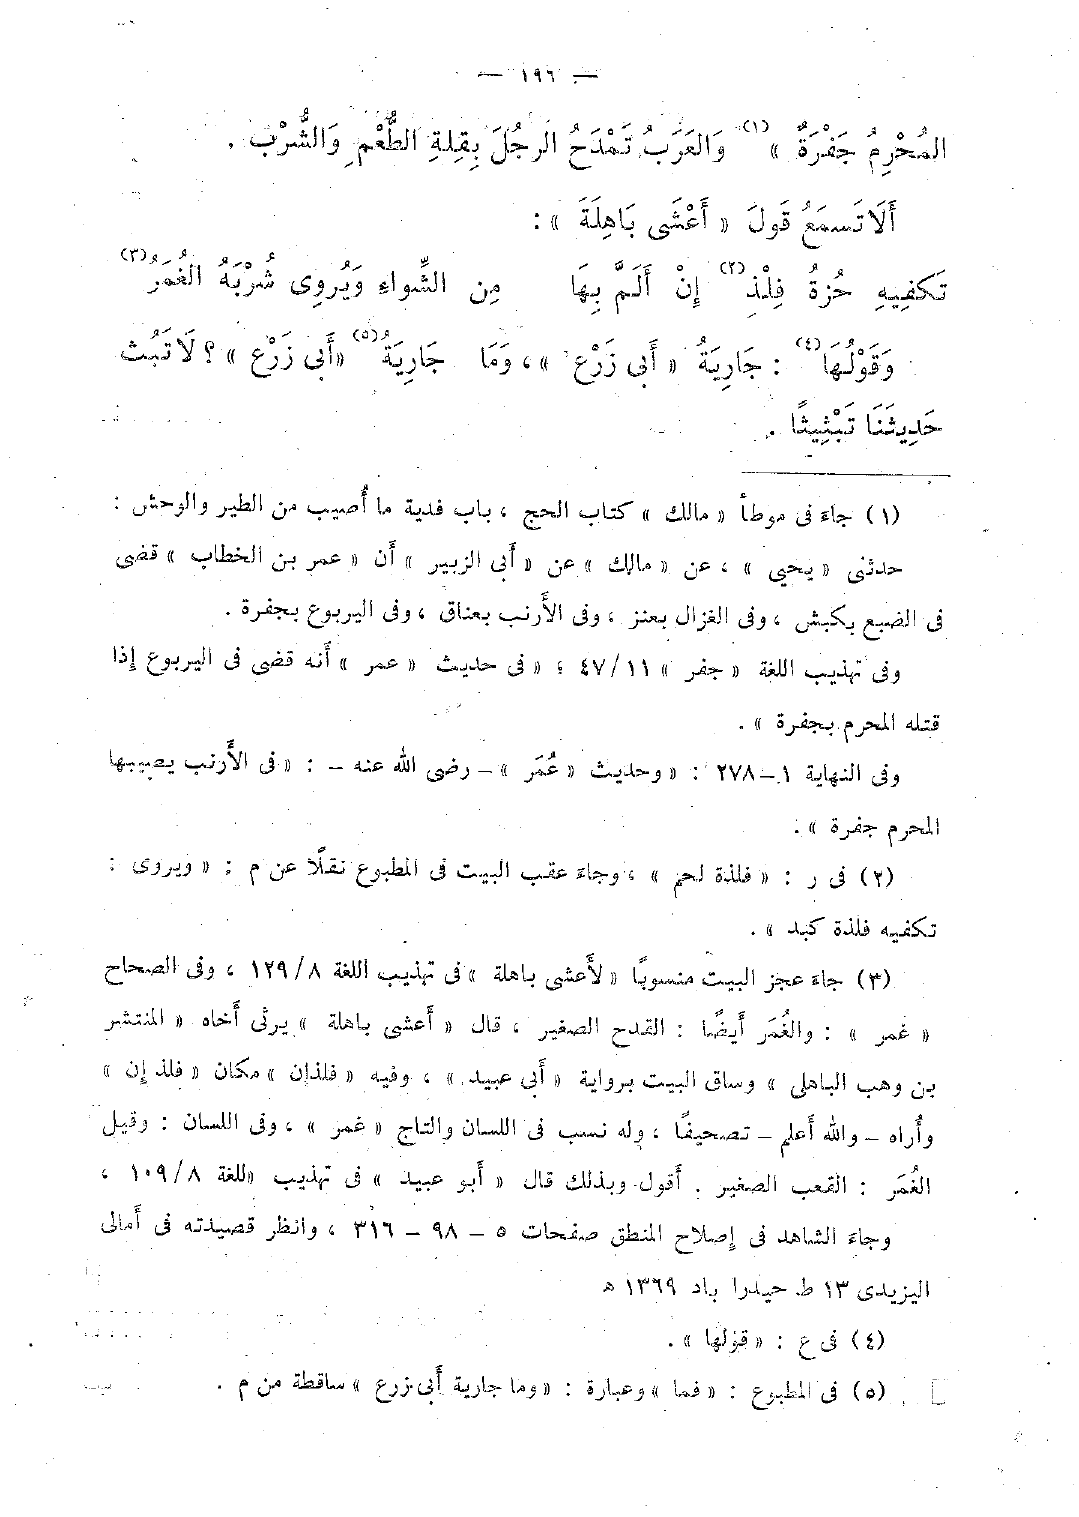 — ١٩٦ —
المُحْرِمُ جَفْرَةٌ »(١) وَالعَرَبُ تَمْدَحُ الرجُلَ بِقِلةِ الطُّعْمِ وَالشُّرْبِ .
أَلَا تَسمَعُ قَولَ « أَعْشَى بَاهِلَةَ » :
تَكفِيهِ حُزةُ فِلْذٍ(٢) إِنْ أَلَمَّ بِهَا مِن الشِّواءِ وَيُروِى شُرْبَهُ الغُمَرُ(٣)
وَقَوْلُهَا(٤) : جَارِيَةُ « أَبى زَرْعٍ » ، وَمَا جَارِيَةُ(٥) « أَبى زَرْعٍ » ؟ لَا تَبُث
حَدِيثَنَا تَبْثِيثًا .
(١) جاء فى موطأ « مالك » كتاب الحج ، باب فدية ما أُصيب من الطير والوحش :
حدثنى « يحيى » ، عن « مالك » عن « أَبى الزبير » أَن « عمر بن الخطاب » قضى
فى الضبع بكبش ، وفى الغزال بعنز ، وفى الأَرنب بعناق ، وفى اليربوع بجفرة .
وفى تهذيب اللغة « جفر » ٤٧/١١ ؛ « فى حديث « عمر » أَنه قضى فى اليربوع إذا
قتله المحرم بجفرة » .
وفى النهاية ١ – ٢٧٨ : « وحديث « عُمَر » – رضى الله عنه – : « فى الأَرنب يصيبها
المحرم جفرة » .
(٢) فى ر : « فلذة لحم » ، وجاء عقب البيت فى المطبوع نقلًا عن م : « ويروى :
تكفيه فلذة كبد » .
(٣) جاء عجز البيت منسوبًا « لأَعشى باهلة » فى تهذيب اللغة ١٢٩/٨ ، وفى الصحاح
« غمر » : والغُمَر أَيضًا : القدح الصغير ، قال « أَعشى باهلة » يرثى أَخاه « المنتشر
بن وهب الباهلى » وساق البيت برواية « أَبى عبيد » ، وفيه « فلذان » مكان « فلذ إن »
وأُراه – والله أَعلم – تصحيفًا ، وله نسب فى اللسان والتاج « غمر » ، وفى اللسان : وقيل
الغُمَر : القعب الصغير . أَقول وبذلك قال « أَبو عبيد » فى تهذيب اللغة ١٠٩/٨ ،
وجاء الشاهد فى إصلاح المنطق صفحات ٥ – ٩٨ – ٣١٦ ، وانظر قصيدته فى أَمالى
اليزيدى ١٣ ط حيدرا باد ١٣٦٩ ه
(٤) فى ع : « قولها » .
(٥) فى المطبوع : « فما » وعبارة : « وما جارية أَبى زرع » ساقطة من م .